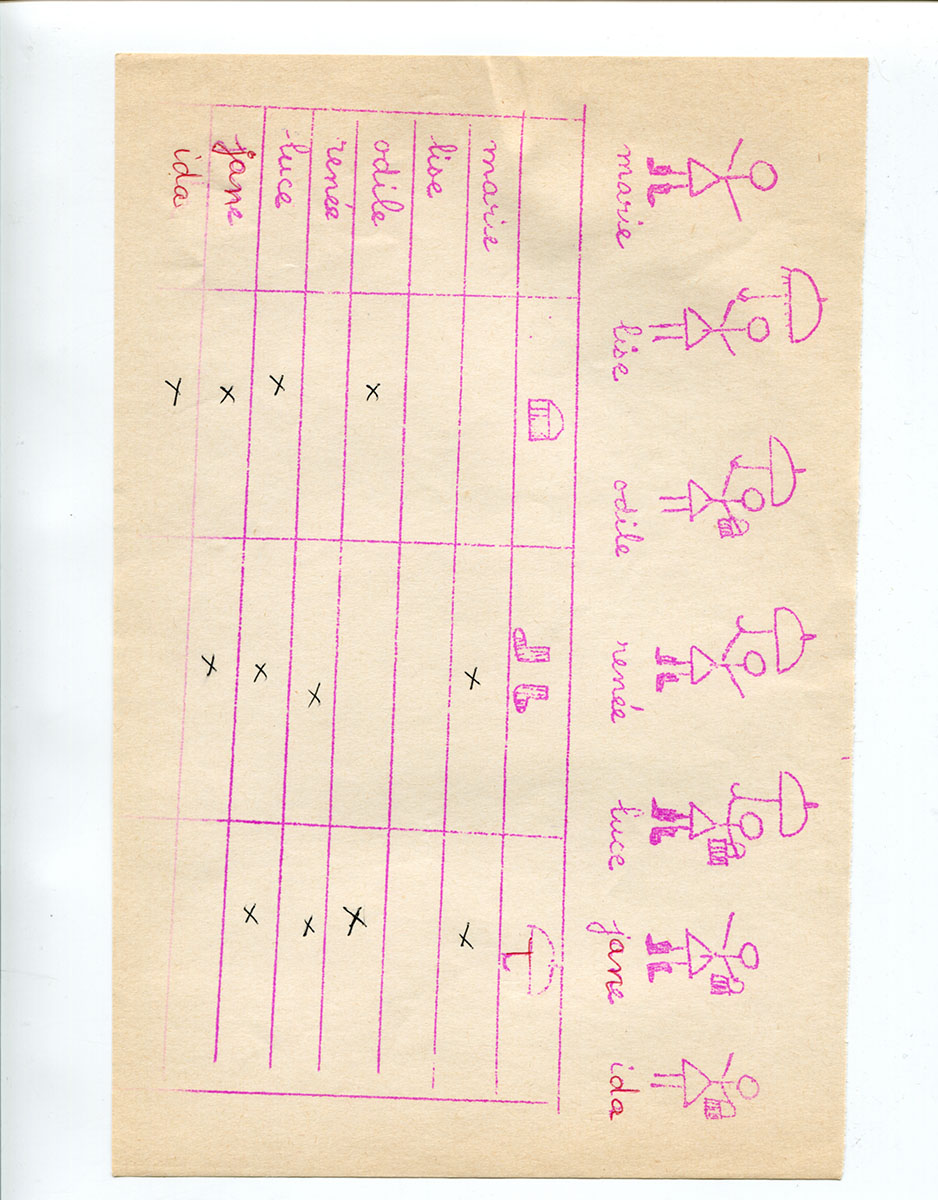 marie lise odile renée luce jane ida
marie
lise
odile
renée
luce
jane
ida